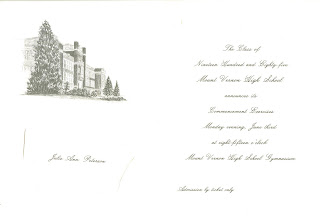 The Class of
Nineteen Hundred and Eighty-five
Mount Vernon High School
announces its
Commencement Exercises
Monday evening, June third
at eight fifteen o'clock
Mount Vernon High School Gymnasium
Admission by ticket only
Julie Ann Peterson